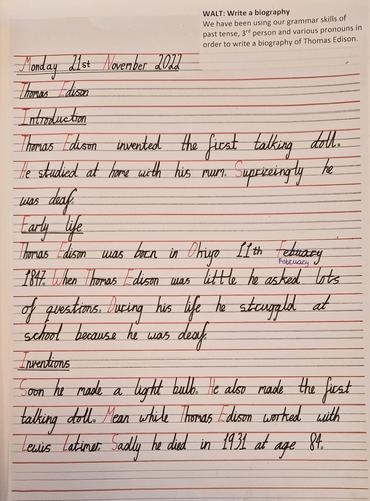 WALT: Write a biography
We have been using our grammar skills of
past tense, 3rd person and various pronouns in
order to write a biography of Thomas Edison.
Monday 21st November 2022
Thomas Edison
Introduction
Thomas Edison invented the first talking doll.
He studied at home with his mum. Suprizeingly he
was deaf.
Early life
Thomas Edison was born in Ohiyo 11th Febuary
February
1847. When Thomas Edison was little he asked lots
of questions. During his life he struggld at
school because he was deaf.
Inventions
Soon he made a light bulb. He also made the first
talking doll. Mean while Thomas Edison worked with
Lewis Latimer. Sadly he died in 1931 at age 84.